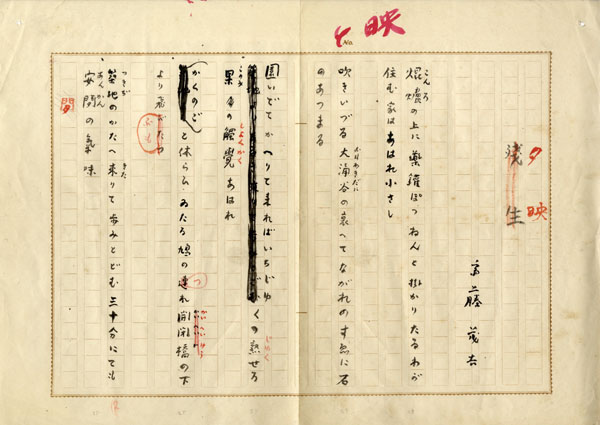 夕映
夕映
浅生
茂吉
こんろ
焜爐の上に藥鑵ぽつねんと掛かりたるわが
住む家はあはれ小さし
おほわきだに
吹きいづる大涌谷の
てながれのすゑに石
のあつまる
いでてかへりて来ればいちじゆくの熟せる
果の觸覺あはれ
しよくかく
かくのごと
ゐたる鳩の連れ開閉橋の下
より
つきぢ
築地のかたへ来りて歩みとどむ三十分にても
あんかん
安閑の氣味
閑